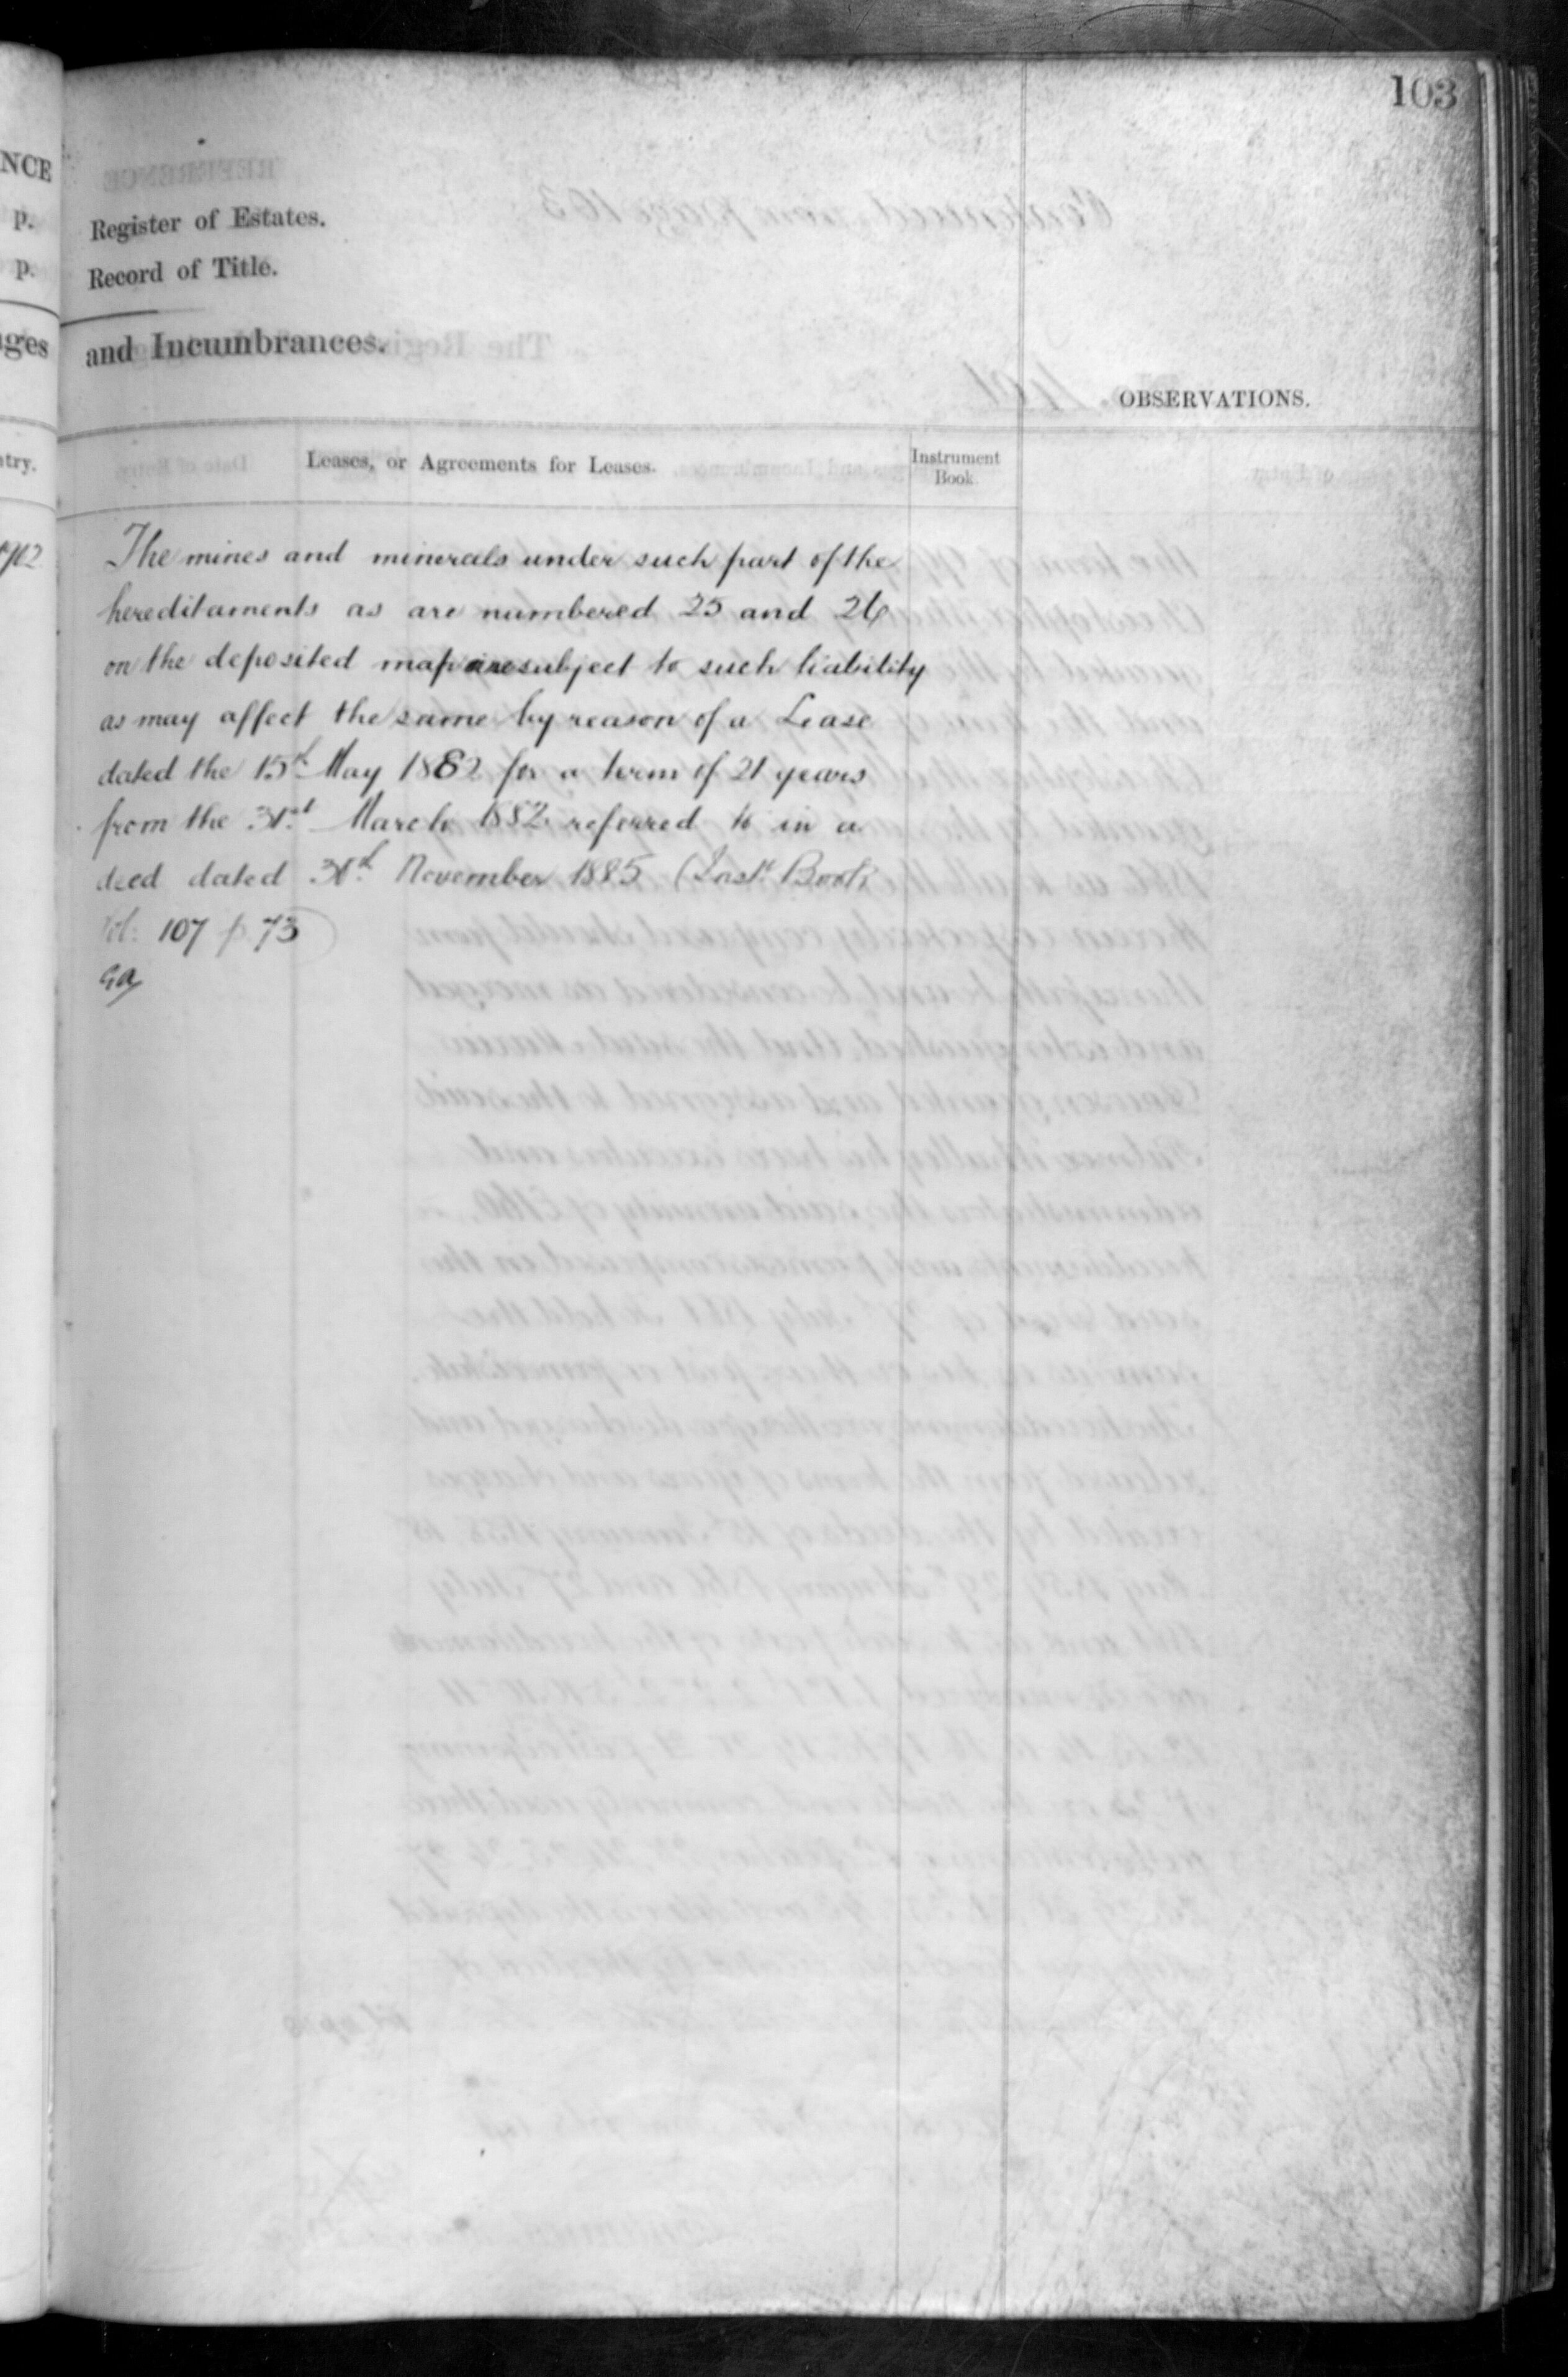 103
NCE
p.
p.
ges
try.
Register of Estates.
Record of Title.
and Incumbrances.
OBSERVATIONS.
Leases, or Agreements for Leases.
Instrument
Book.
The mines and minerals under such part of the
hereditaments as are numbered 25 and 26
on the deposited map are subject to such liability
as may affect the same by reason of a Lease
dated the 15th May 1882 for a term of 21 years
from the 31st March 1882 referred to in a
deed dated November 1885 (Inst. Book
Vol. 107 p. 73)